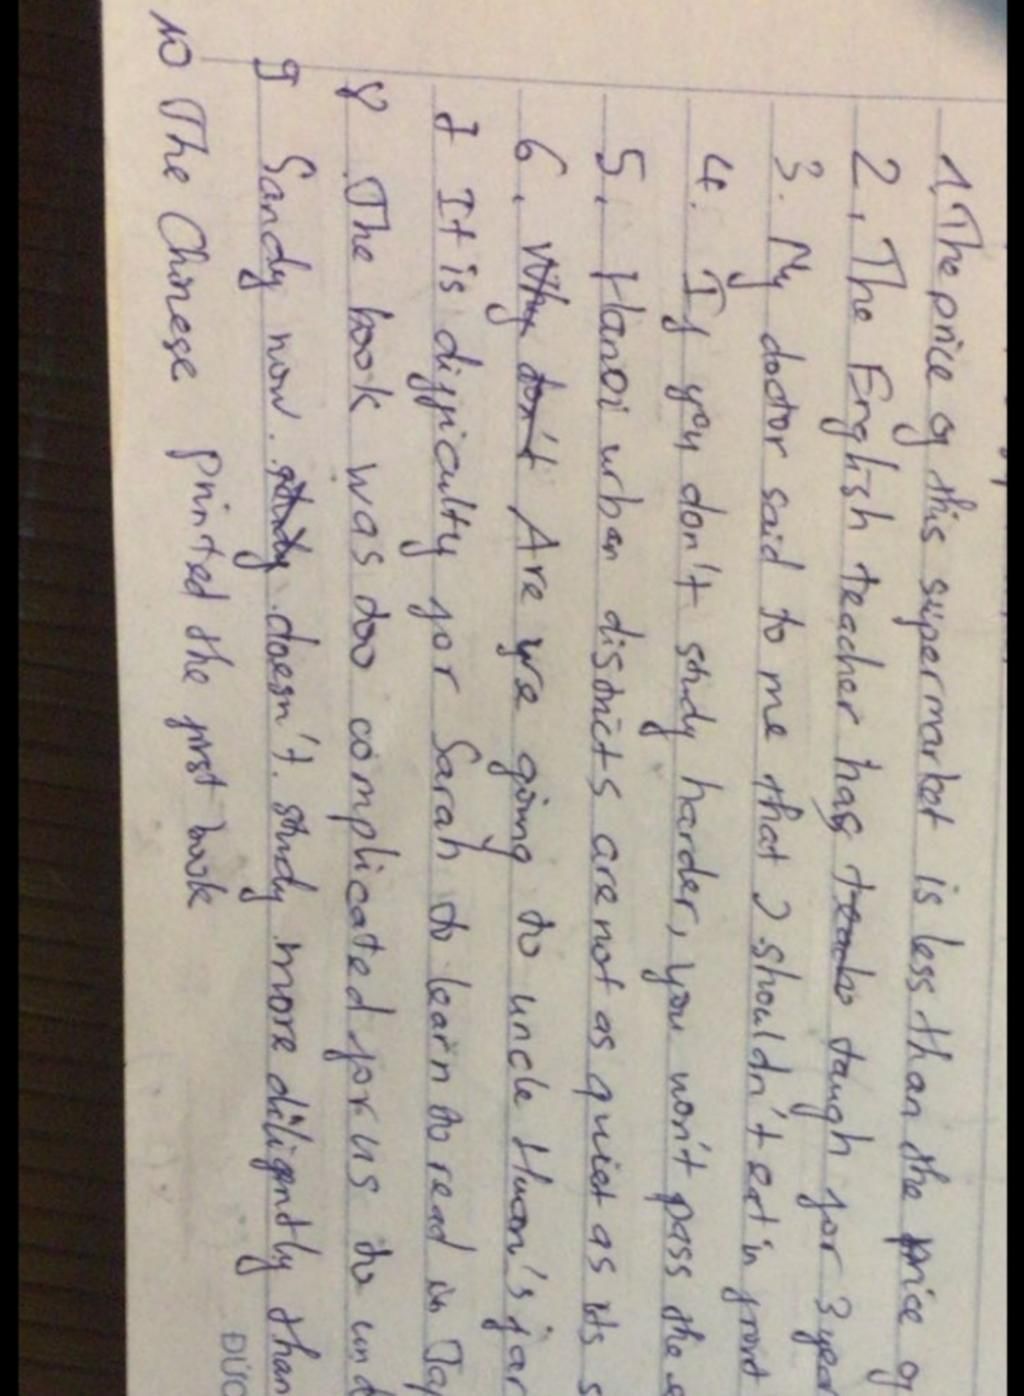 1, The price of this supermarket is less than the price of
2, The English teacher has taugh for 3 year
3. My doctor said to me that I shouldn't eat in front
4. If you don't study harder, you won't pass the e
5, Hanoi urban districts are not as quiet as its s
6, Why don't Are we going to uncle Huan's far
7 It is difficulty for Sarah to learn to read in Jap
8 The book was too complicated for us to und
9 Sandy now. study. doesn't. study more diligently than
10 The Chinese printed the first book
ĐỨC